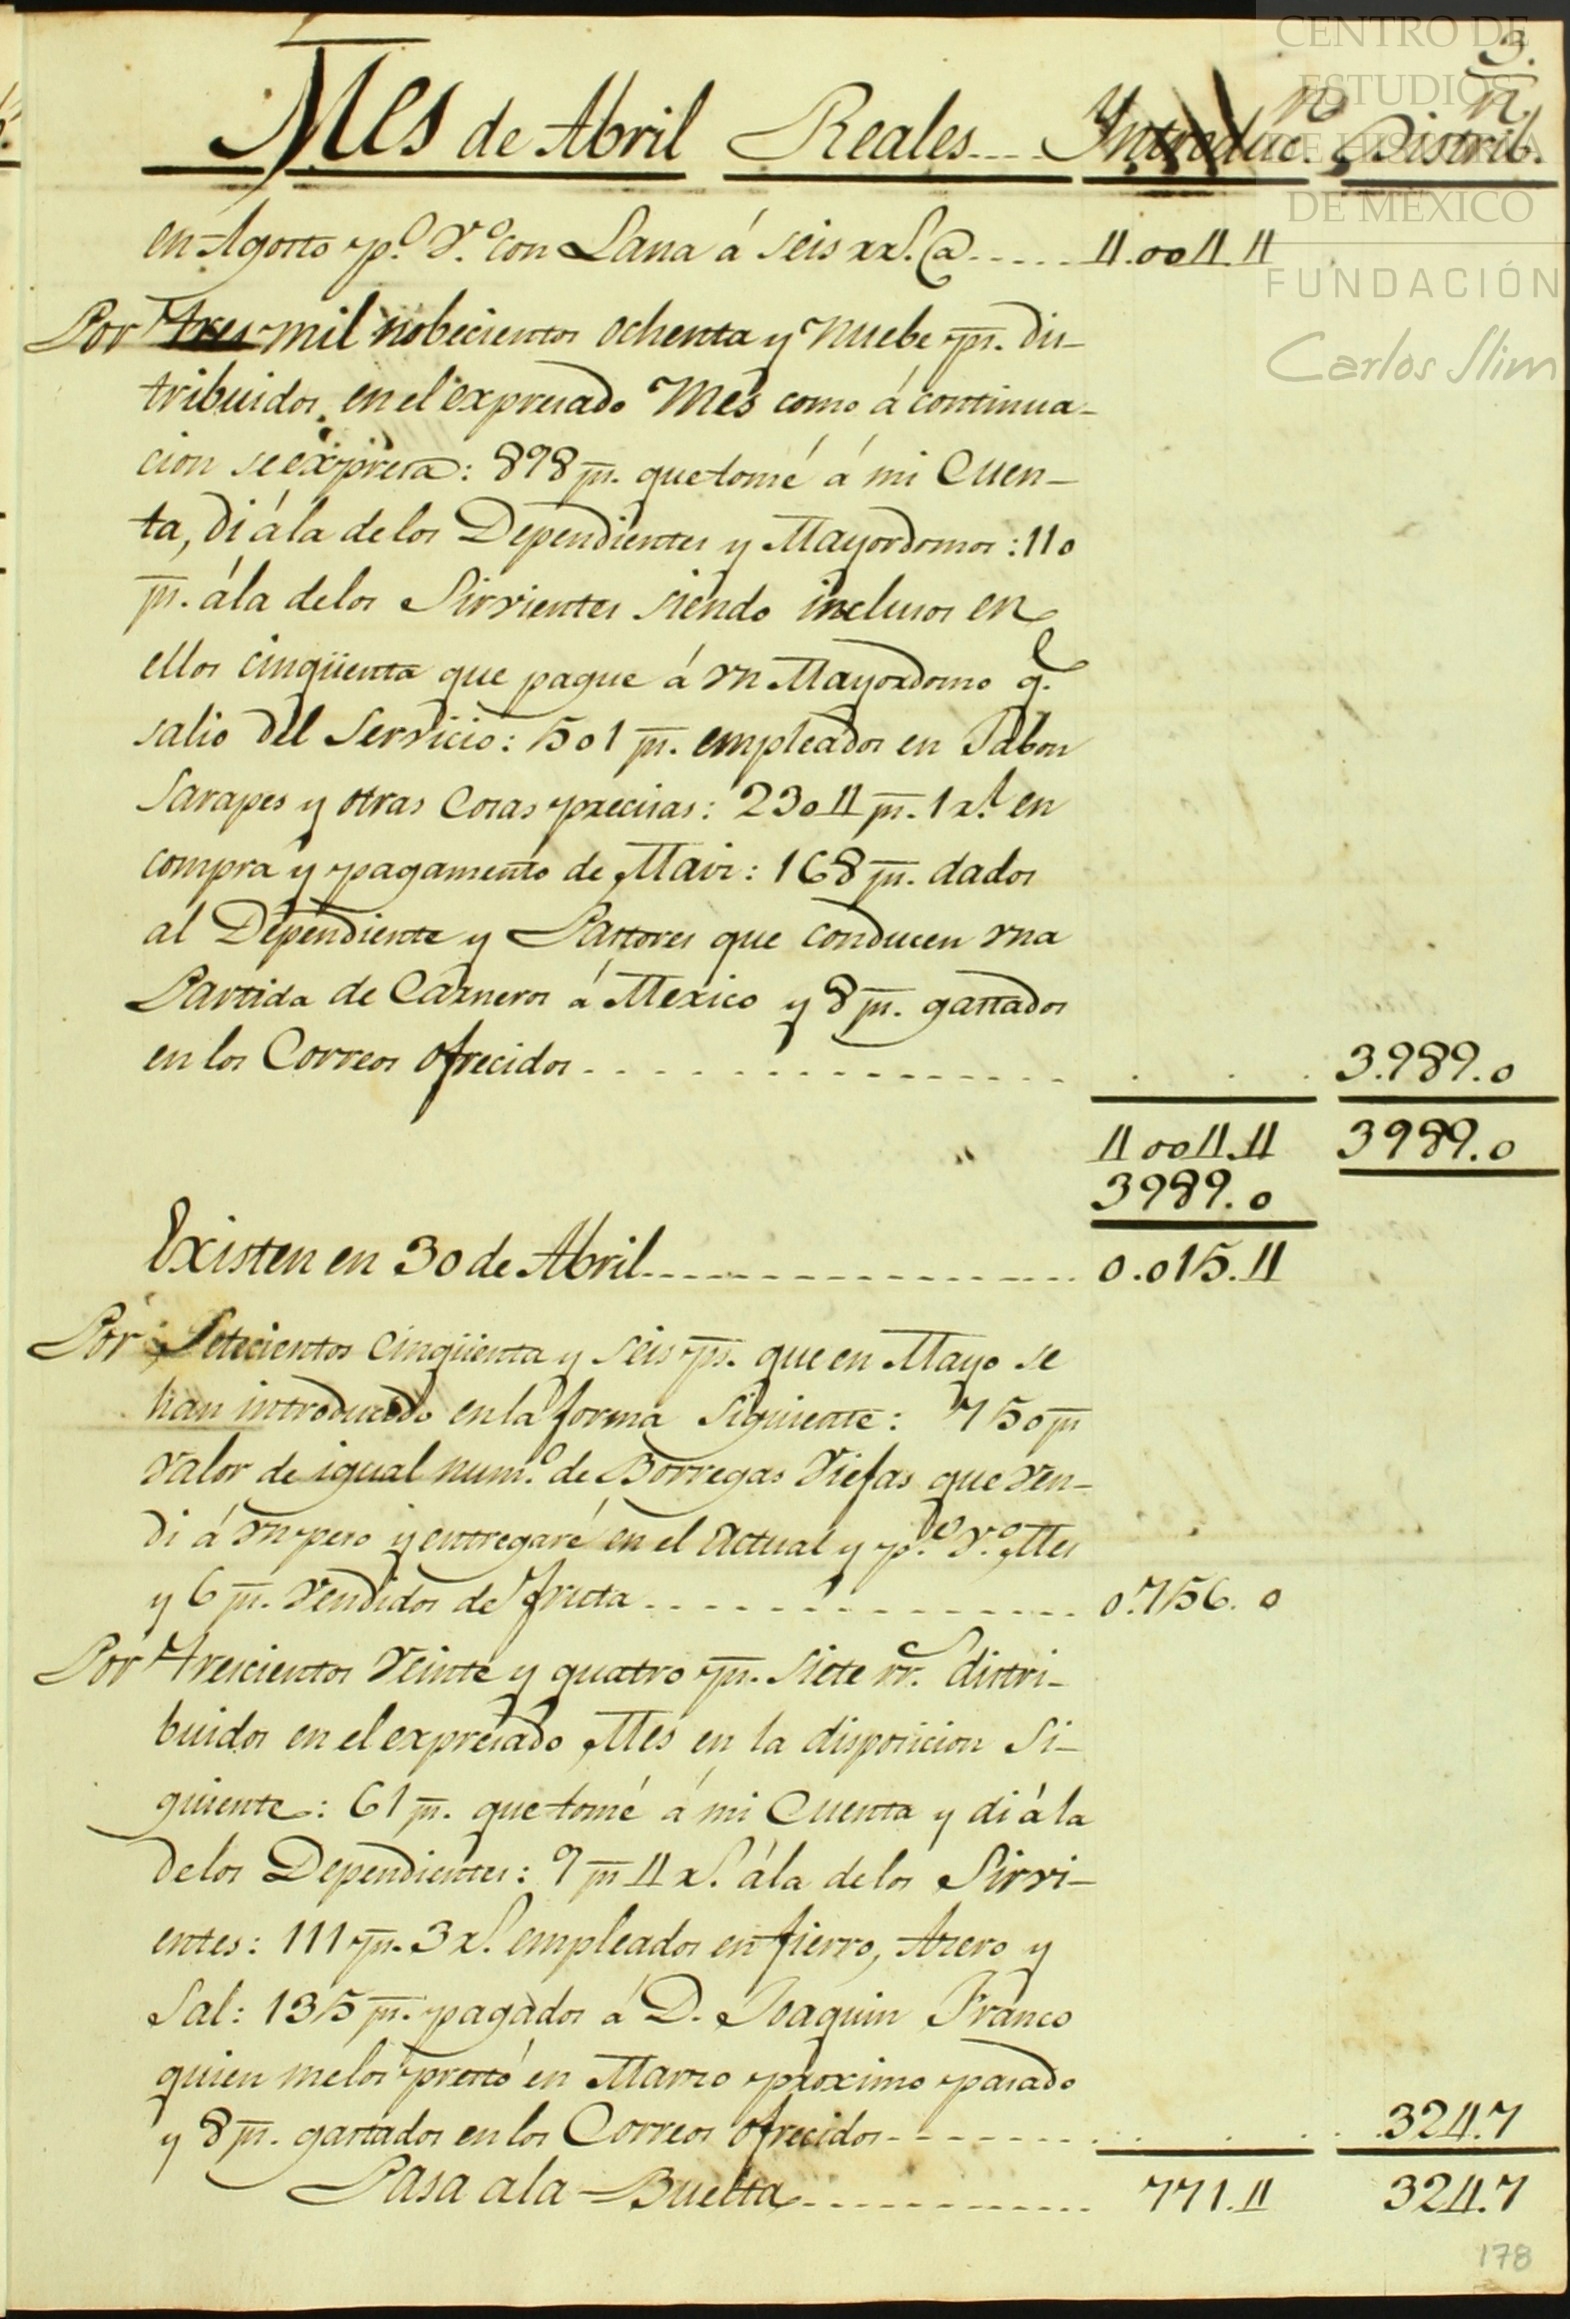 CENTRO DE
ESTUDIOS
DE HISTORIA
DE MÉXICO
FUNDACIÓN
Carlos Slim
3.
Mes de Abril Reales.... Introduc.n Distrib.n
en Agosto p.o v.o con Lana á seis rr.s @..... 4.004.4
Por tres mil nobecientos ochenta y nuebe ps. dis-
tribuidos en el expresado Mes como á continua-
cion se expresa: 898 ps. que tomé á mi Cuen-
ta, di á la de los Dependientes y Mayordomos: 110
ps. á la de los Sirvientes siendo inclusos en
ellos cinqüenta que pague á vn Mayordomo q.e
salio del Servicio: 501 ps. empleados en Jabon
Sarapes y otras Cosas precisas: 2304 ps. 1 rl. en
compra y pagamento de Maiz: 168 ps. dados
al Dependiente y Pastores que conducen vna
Partida de Carneros á Mexico y 8 ps. gastados
en los Correos ofrecidos................ 3.989.0
4004.4 3989.0
3989.0
Existen en 30 de Abril................ 0.015.4
Por Setecientos cinqüenta y seis ps. que en Mayo se
han introducido en la forma siguiente: 750 ps
valor de igual num.o de Borregas Viejas que ven-
di á vn peso y entregaré en el actual y p.o v.o Mes
y 6 ps. vendidos de fruta.............. 0.756.0
Por trescientos veinte y quatro ps. siete rr.s distri-
buidos en el expresado Mes en la disposicion si-
guiente: 61 ps. que tomé á mi Cuenta y di á la
de los Dependientes: 9 ps 4 rs. á la de los Sirvi-
entes: 111 ps. 3 rs. empleados en fierro, Azero y
Sal: 135 ps. pagados á D. Joaquin Franco
quien melos prestó en Marzo proximo pasado
y 8 ps. gastados en los Correos ofrecidos........ 324.7
Pasa ala Buelta............ 771.4 324.7
178